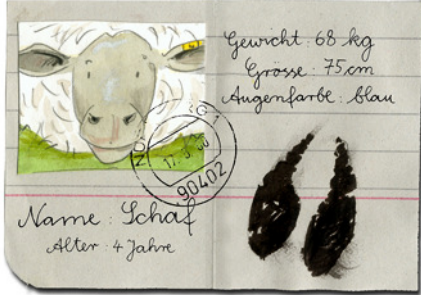 Gewicht: 68 kg
Grösse: 75 cm
Augenfarbe: blau
90402
Name: Schaf
Alter: 4 Jahre